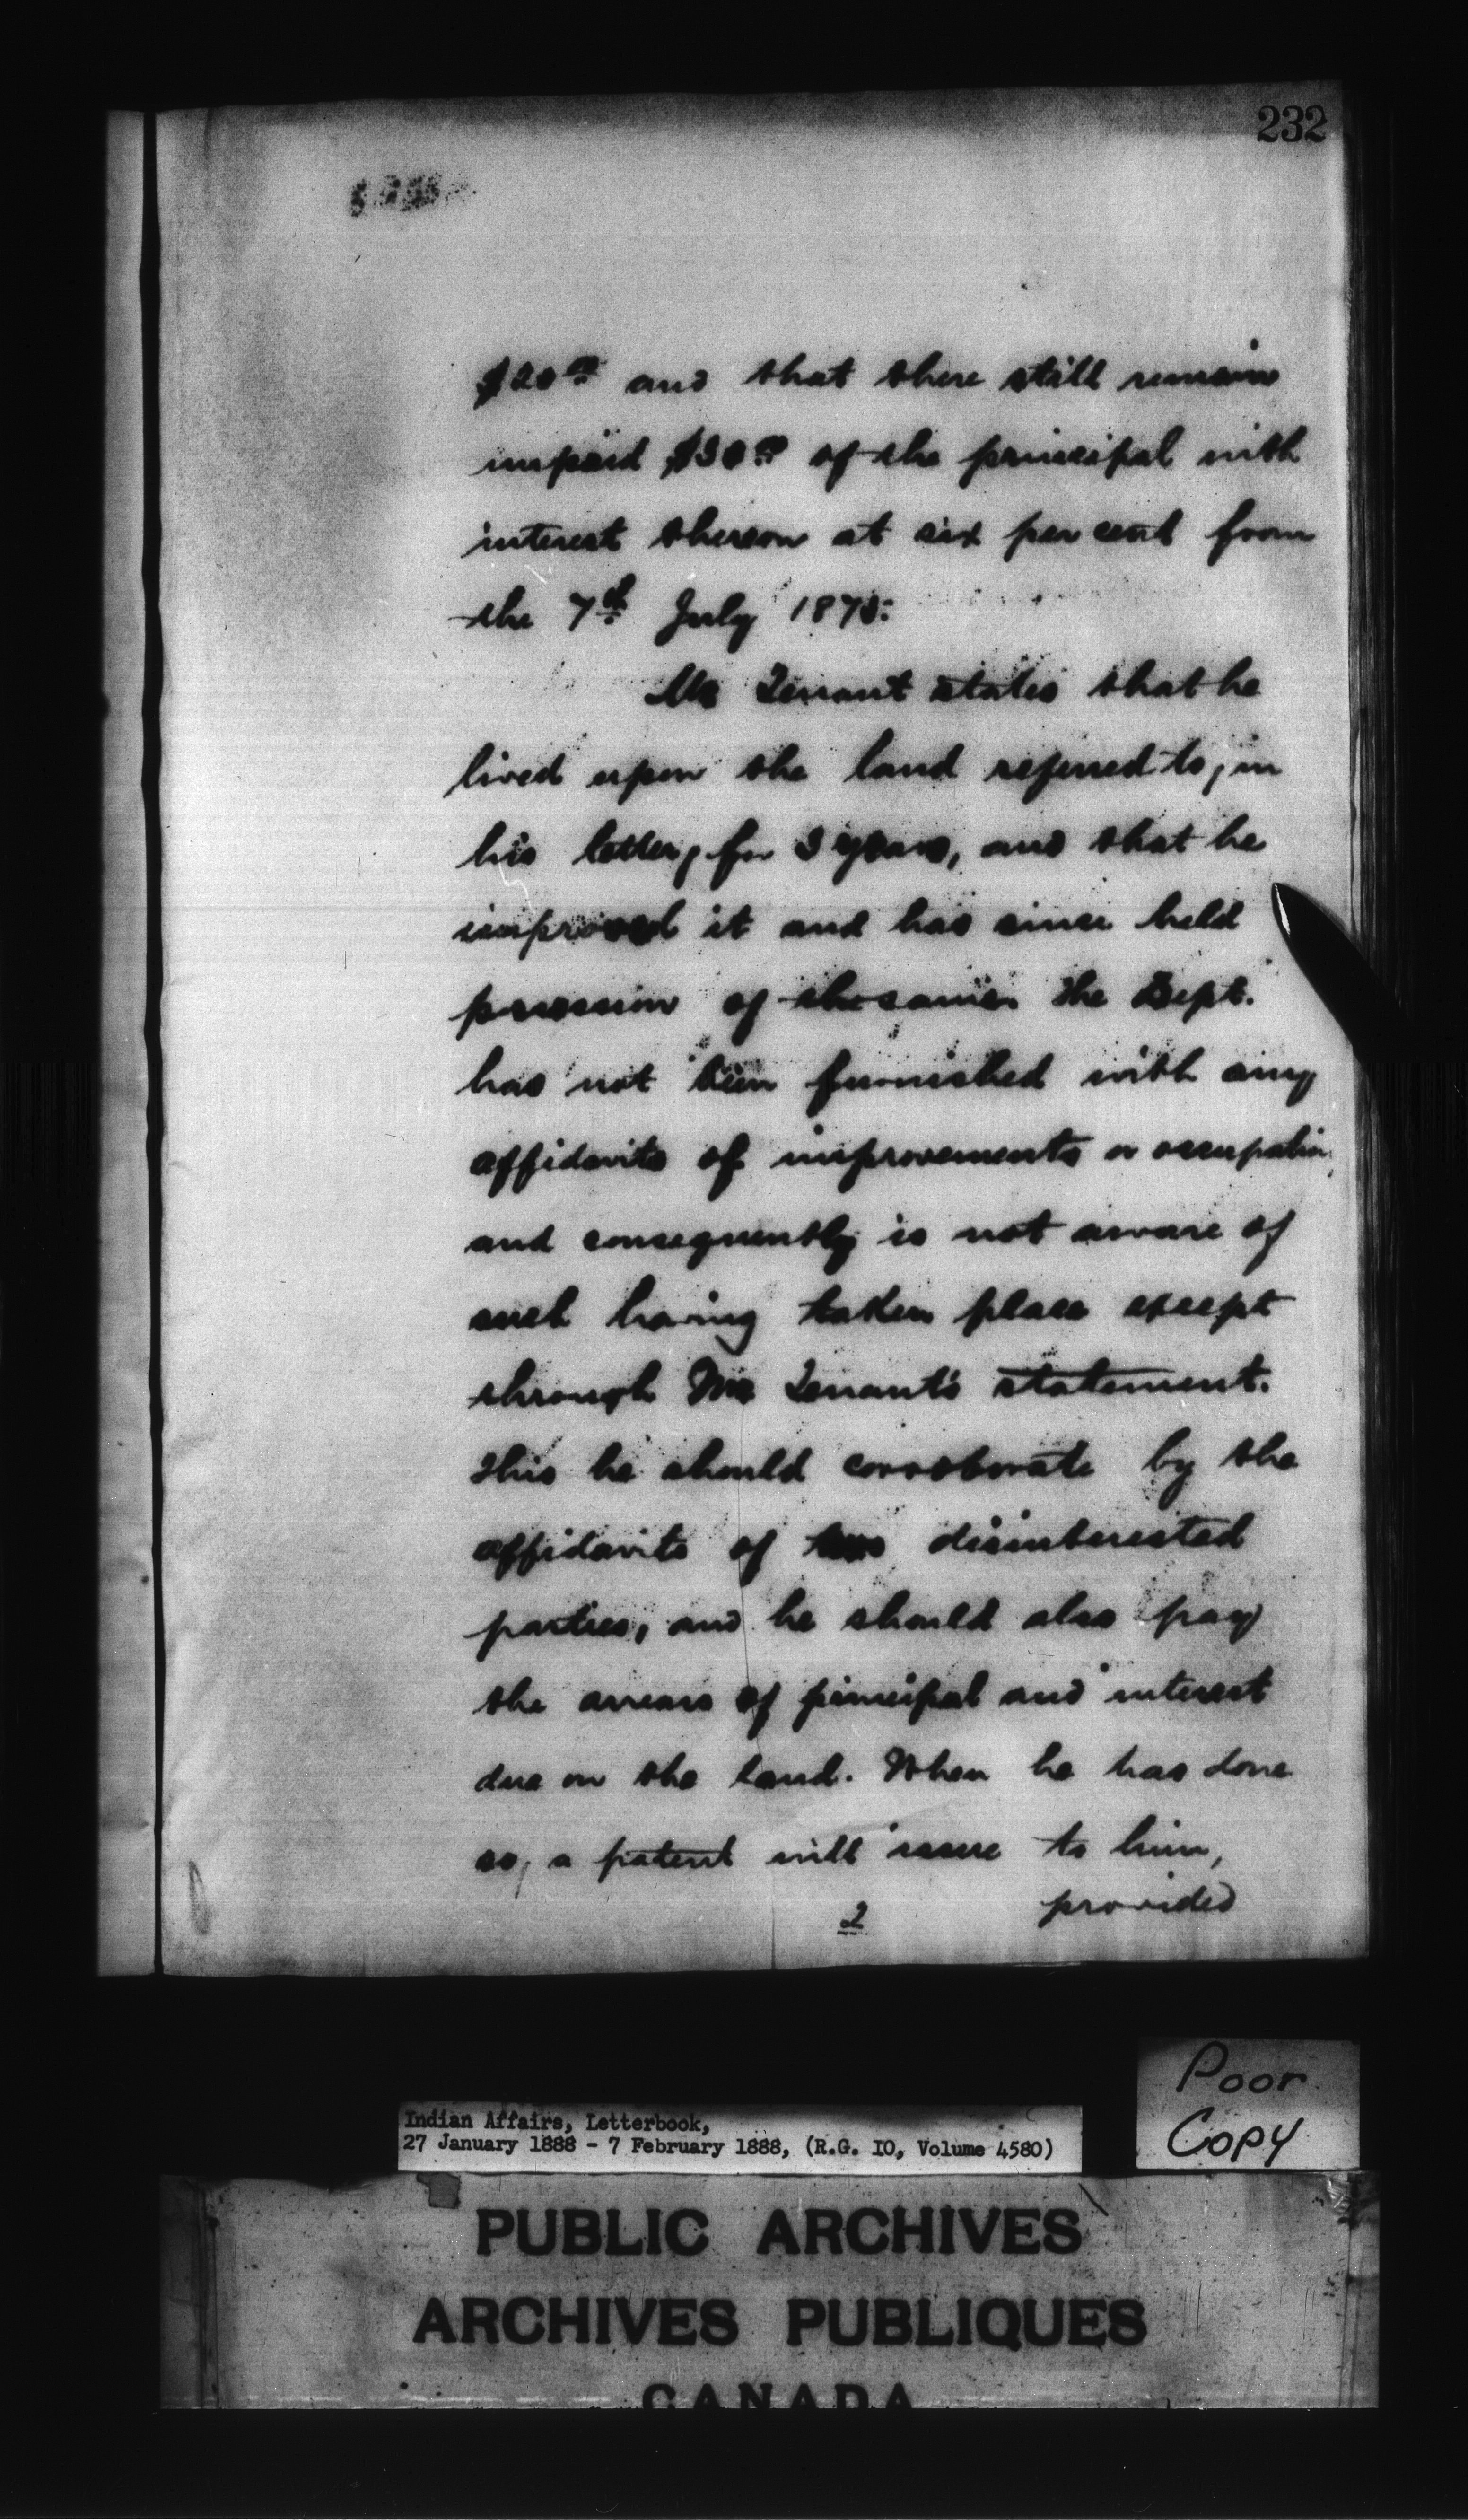 232
$20.00 and that there still remains
unpaid $30.00 of the principal with
interest thereon at six per cent from
the 7th July 1875.
Mr Tennant states that he
lived upon the land referred to, in
his letter, for 3 years, and that he
improved it and has since held
possession of the same. The Dept.
has not been furnished with any
affidavits of improvements or occupation,
and consequently is not aware of
such having taken place except
through Mr Tennant's statement.
This he should corroborate by the
affidavits of two disinterested
parties, and he should also pay
the arrears of principal and interest
due on the land. When he has done
so, a patent will issue to him,
2 provided
Poor
Copy
Indian Affairs, Letterbook,
27 January 1888 - 7 February 1888, (R.G. IO, Volume 4580)
PUBLIC ARCHIVES
ARCHIVES PUBLIQUES
CANADA